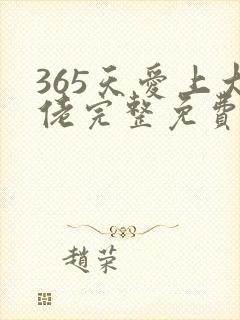 365天愛上大
佬完整免費
趙荣